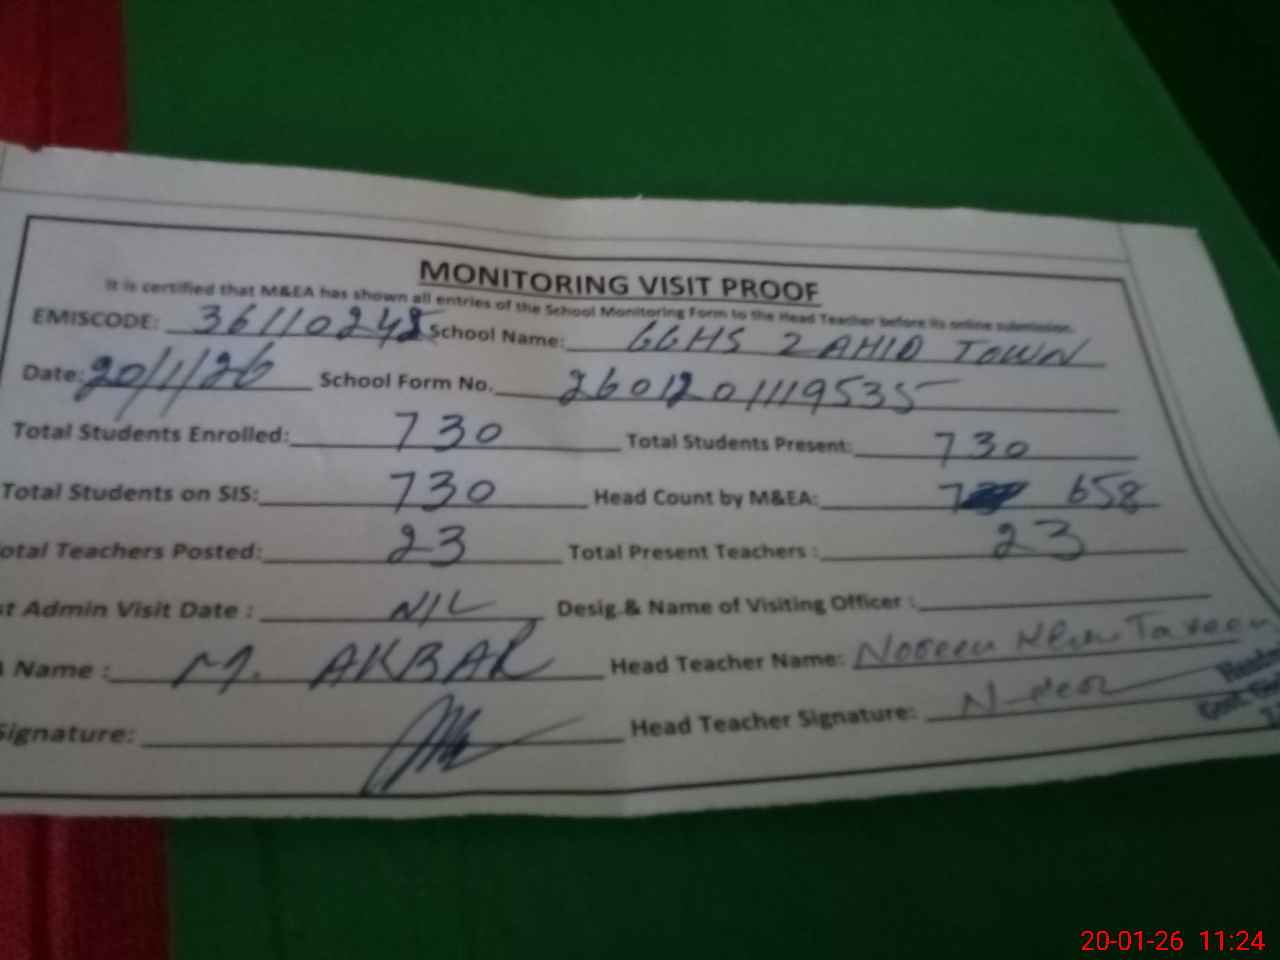 MONITORING VISIT PROOF
It is certified that M&EA has shown all entries of the School Monitoring Form to the Head Teacher before its online submission.
EMISCODE: 36110248 School Name: GGHS ZAHID TOWN
Date: 20/1/26 School Form No. 26012011119535
Total Students Enrolled: 730 Total Students Present: 730
Total Students on SIS: 730 Head Count by M&EA: 658
otal Teachers Posted: 23 Total Present Teachers : 23
st Admin Visit Date : NIL Desig.& Name of Visiting Officer :
A Name : M. AKBAR Head Teacher Name: Noreen
Signature: Head Teacher Signature:
20-01-26 11:24